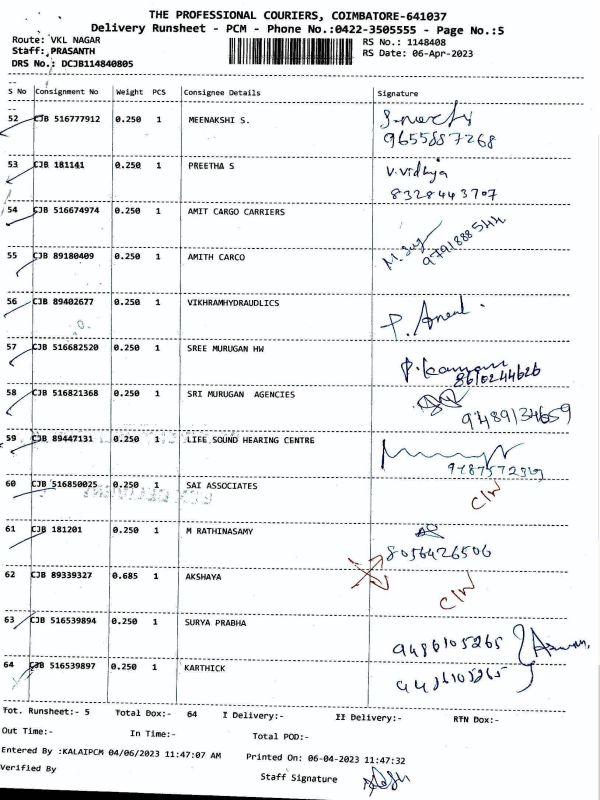 THE PROFESSIONAL COURIERS, COIMBATORE-641037
Delivery Runsheet - PCM - Phone No.:0422-3505555 - Page No.:5
Route: VKL NAGAR RS No.: 1148408
Staff: PRASANTH RS Date: 06-Apr-2023
DRS No.: DCJB114840805
S No Consignment No Weight PCS Consignee Details Signature
52 CJB 516777912 0.250 1 MEENAKSHI S.
9655887268
53 CJB 181141 0.250 1 PREETHA S V.Vidhya
8328443707
54 CJB 516674974 0.250 1 AMIT CARGO CARRIERS
9791888544
55 CJB 89180409 0.250 1 AMITH CARCO
56 CJB 89402677 0.250 1 VIKHRAMHYDRAUDLICS
57 CJB 516682520 0.250 1 SREE MURUGAN HW
8610244626
58 CJB 516821368 0.250 1 SRI MURUGAN AGENCIES
9489134659
59 CJB 89447131 0.250 1 LIFE SOUND HEARING CENTRE
60 CJB 516850025 0.250 1 SAI ASSOCIATES
61 CJB 181201 0.250 1 M RATHINASAMY
8056426506
62 CJB 89339327 0.685 1 AKSHAYA
63 CJB 516539894 0.250 1 SURYA PRABHA
9486105265
64 CJB 516539897 0.250 1 KARTHICK
9486105265
Tot. Runsheet:- 5 Total Dox:- 64 I Delivery:- II Delivery:- RTN Dox:-
Out Time:- In Time:- Total POD:-
Entered By :KALAIPCM 04/06/2023 11:47:07 AM Printed On: 06-04-2023 11:47:32
Verified By Staff Signature